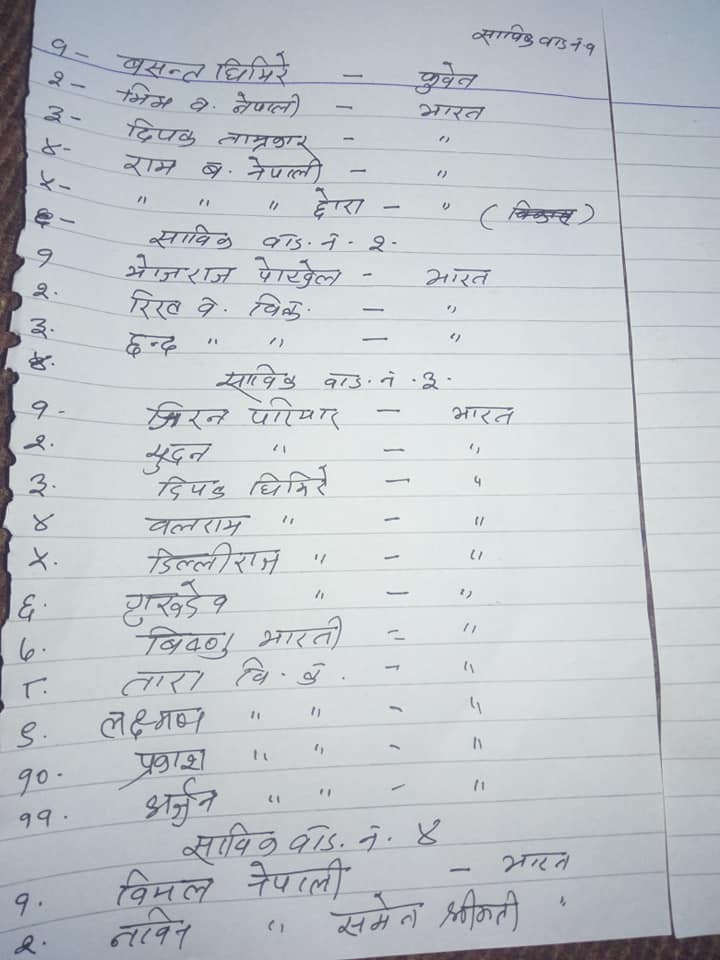 साविक वाड नं १
१- बसन्त घिमिरे - कुवेत
२- भिम व. नेपाली - भारत
३- दिपक ताम्रकार - "
४- राम ब. नेपाली - "
५- " " " छोरा - " ( )
६- साविक वाड. नं. २.
१ भोजराज पोखेल - भारत
२. रिख व. वि.क. - "
३. छन्द " " - "
४. साविक वाड. नं. ३.
१- मिरन परियार - भारत
२. मुदन " - "
३. दिपक घिमिरे - "
४ वलराम " - "
५. डिल्लीराज " - "
६. " - "
७. बिष्णु भारती = "
८. तारा वि. क. - "
९. लक्ष्मण " " - "
१०. प्रकाश " " - "
११. अर्जुन " " - "
साविक वाड. नं. ४
१. विमल नेपाली - भारत
२. नविन " समेत श्रीमती "